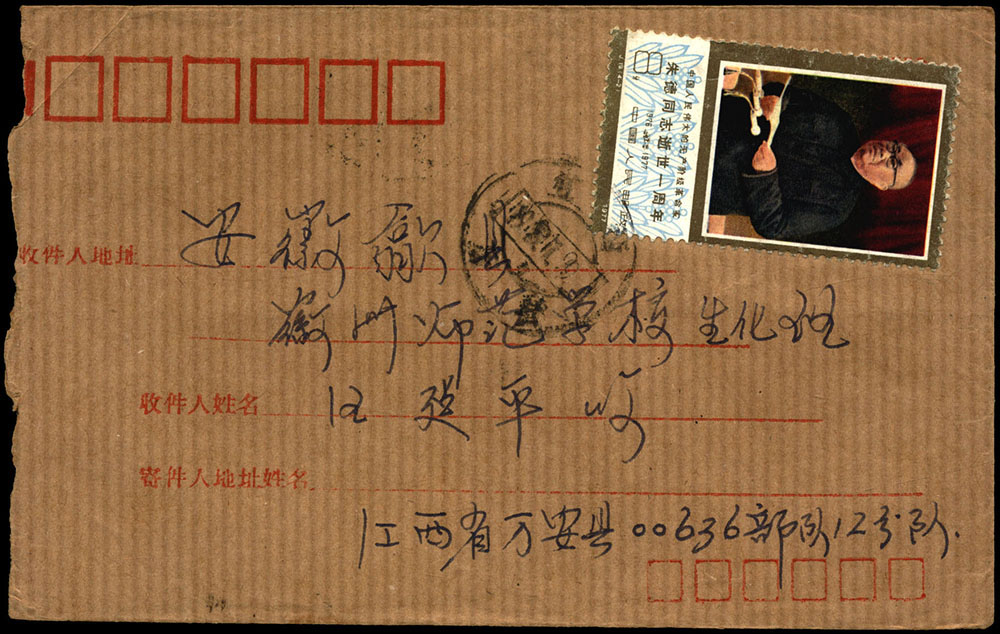 中国人民伟大的无产阶级革命家
朱德同志逝世一周年
1976—1977
中国人民邮政
8分
收件人地址 安徽歙县
徽州师范学校生化班
收件人姓名 汪 平 收
寄件人地址姓名
江西省万安县00636部队12分队.